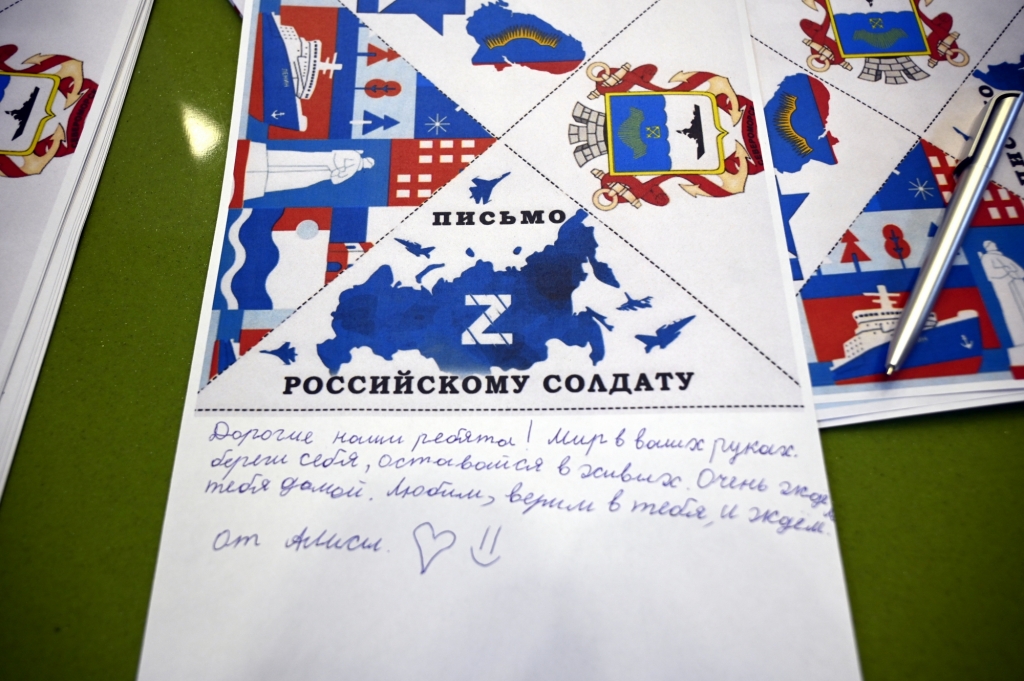 ПИСЬМО
Z
РОССИЙСКОМУ СОЛДАТУ
Дорогие наши ребята! Мир в ваших руках.
береги себя, оставайся в живых. Очень ждём
тебя домой. Любим, верим в тебя, и ждём.
от Алисы.